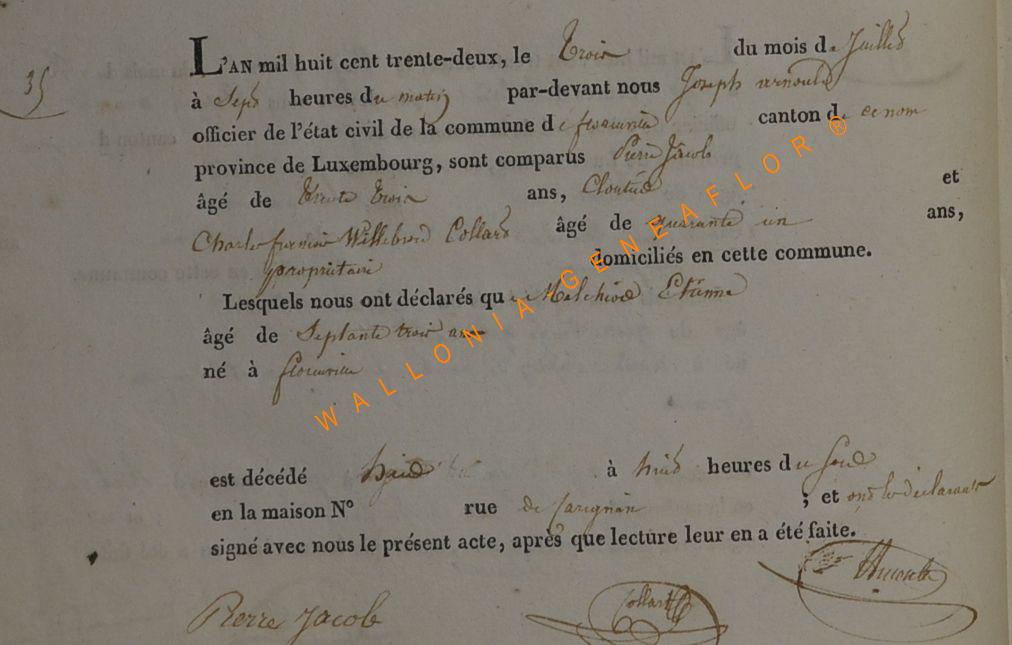 35
L'AN mil huit cent trente-deux, le Trois du mois de Juillet
à Sept heures du matin par-devant nous Joseph arnould
officier de l'état civil de la commune de florenville canton de ce nom
province de Luxembourg, sont comparus Pierre Jacob
âgé de trente trois ans, Cloutier et
Charles Willebrord Collard âgé de quarante un ans,
propriétaire domiciliés en cette commune.
Lesquels nous ont déclarés que Melchior Etienne
âgé de Septante trois ans
né à florenville
est décédé hier à huit heures du Soir
en la maison N° rue de Carignan ; et ont les déclarants
signé avec nous le présent acte, après que lecture leur en a été faite.
Pierre Jacob Collard Arnould
WALLONIA-GENEAFLOR ®